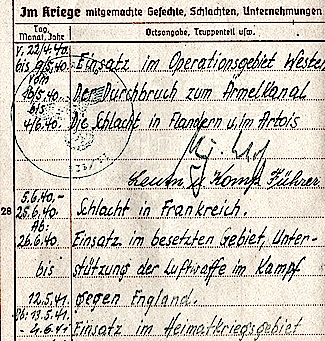 Im Kriege mitgemachte Gefechte, Schlachten, Unternehmungen
Tag, Monat, Jahr
Ortsangabe, Truppenteil usw.
v. 22/4.40.
bis 9/5.40. Einsatz im Operationsgebiet Westen
Vom
10/5.40. Der Durchbruch zum Ärmelkanal
bis
4/6.40. Die Schlacht in Flandern u. im Artois
Leutn. u. Komp. Führer
5.6.40.-
28
25.6.40. Schlacht in Frankreich.
Ab:
26.6.40. Einsatz im besetzten Gebiet, Unter-
bis stützung der Luftwaffe im Kampf
12.5.41. gegen England.
Ab: 13.5.41.
- 4.6.41 Einsatz im Heimatkriegsgebiet